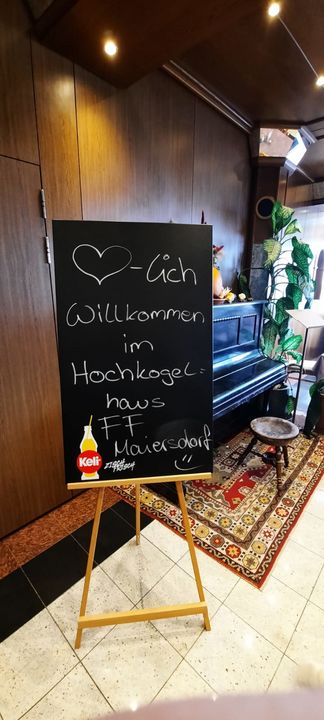 ♡-lich
Willkommen
im
Hochkogel=
haus
FF
Maiersdorf
Keli
ZISCH
FRISCH